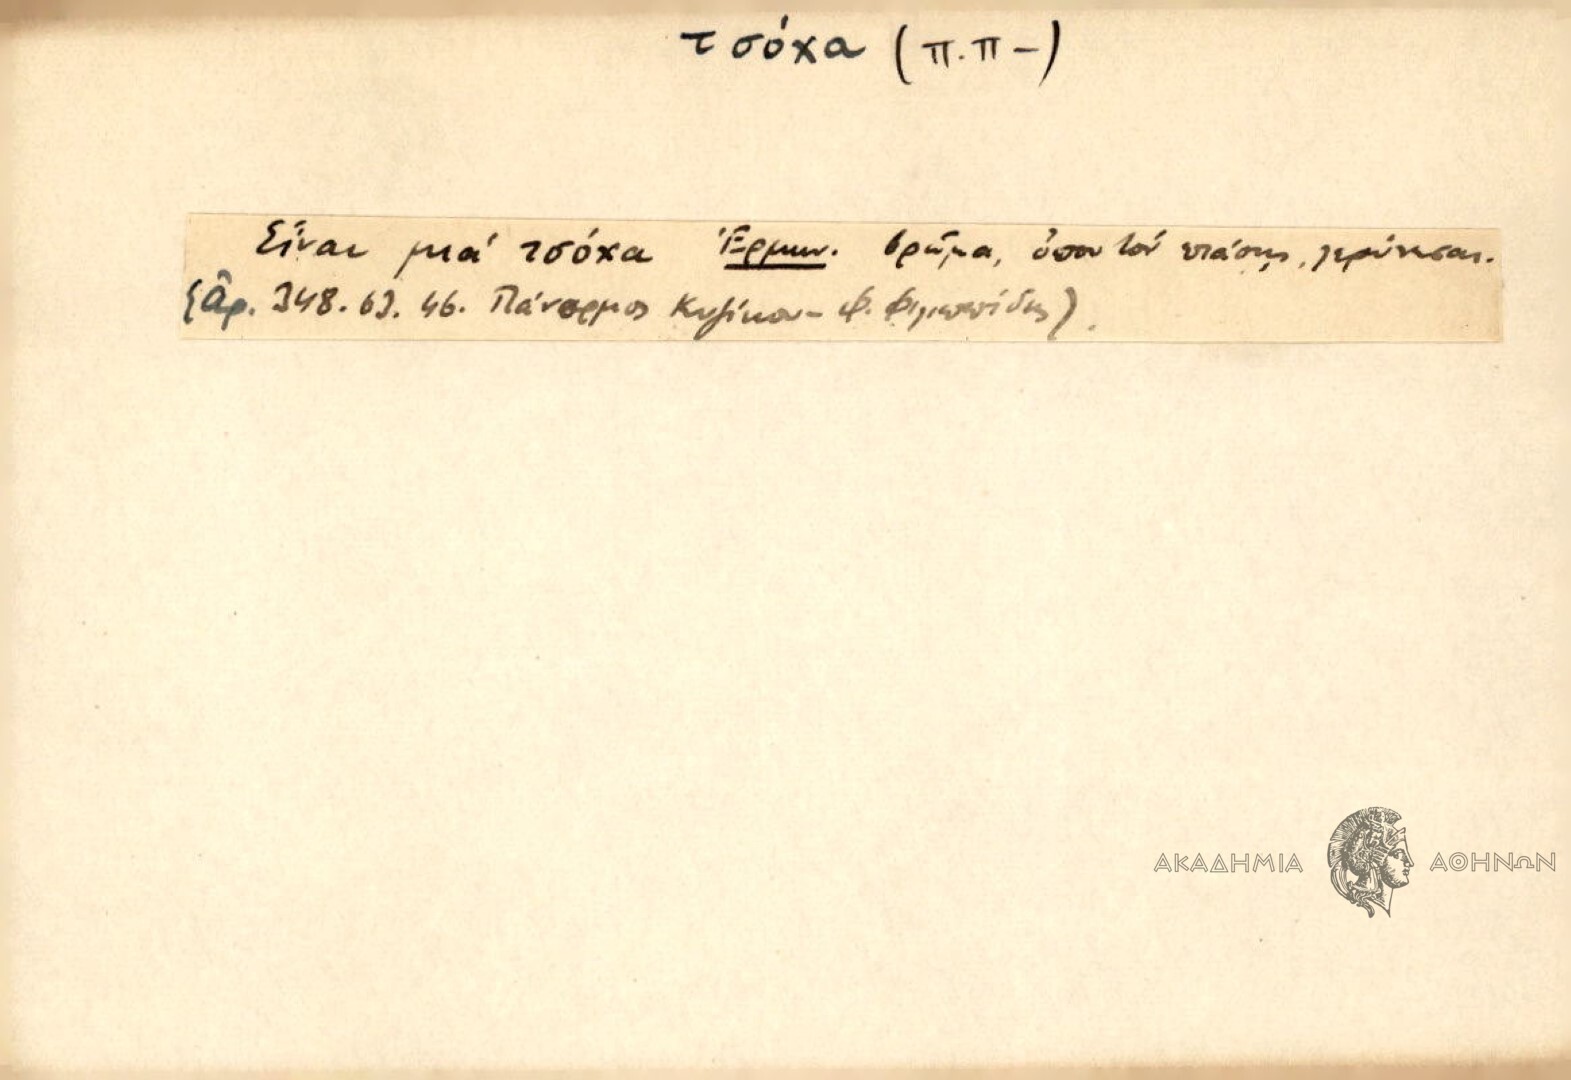 τσόχα (π.π-)
Εἶναι μιά τσόχα Ἑρμην. βρῶμα, ὅπου τόν πιάσης, λερώνεσαι.
(ἀρ. 348. 63. 46. Πάνορμος Κυζίκου - Φ. Φιλιππίδης).
ΑΚΑΔΗΜΙΑ ΑΘΗΝΩΝ